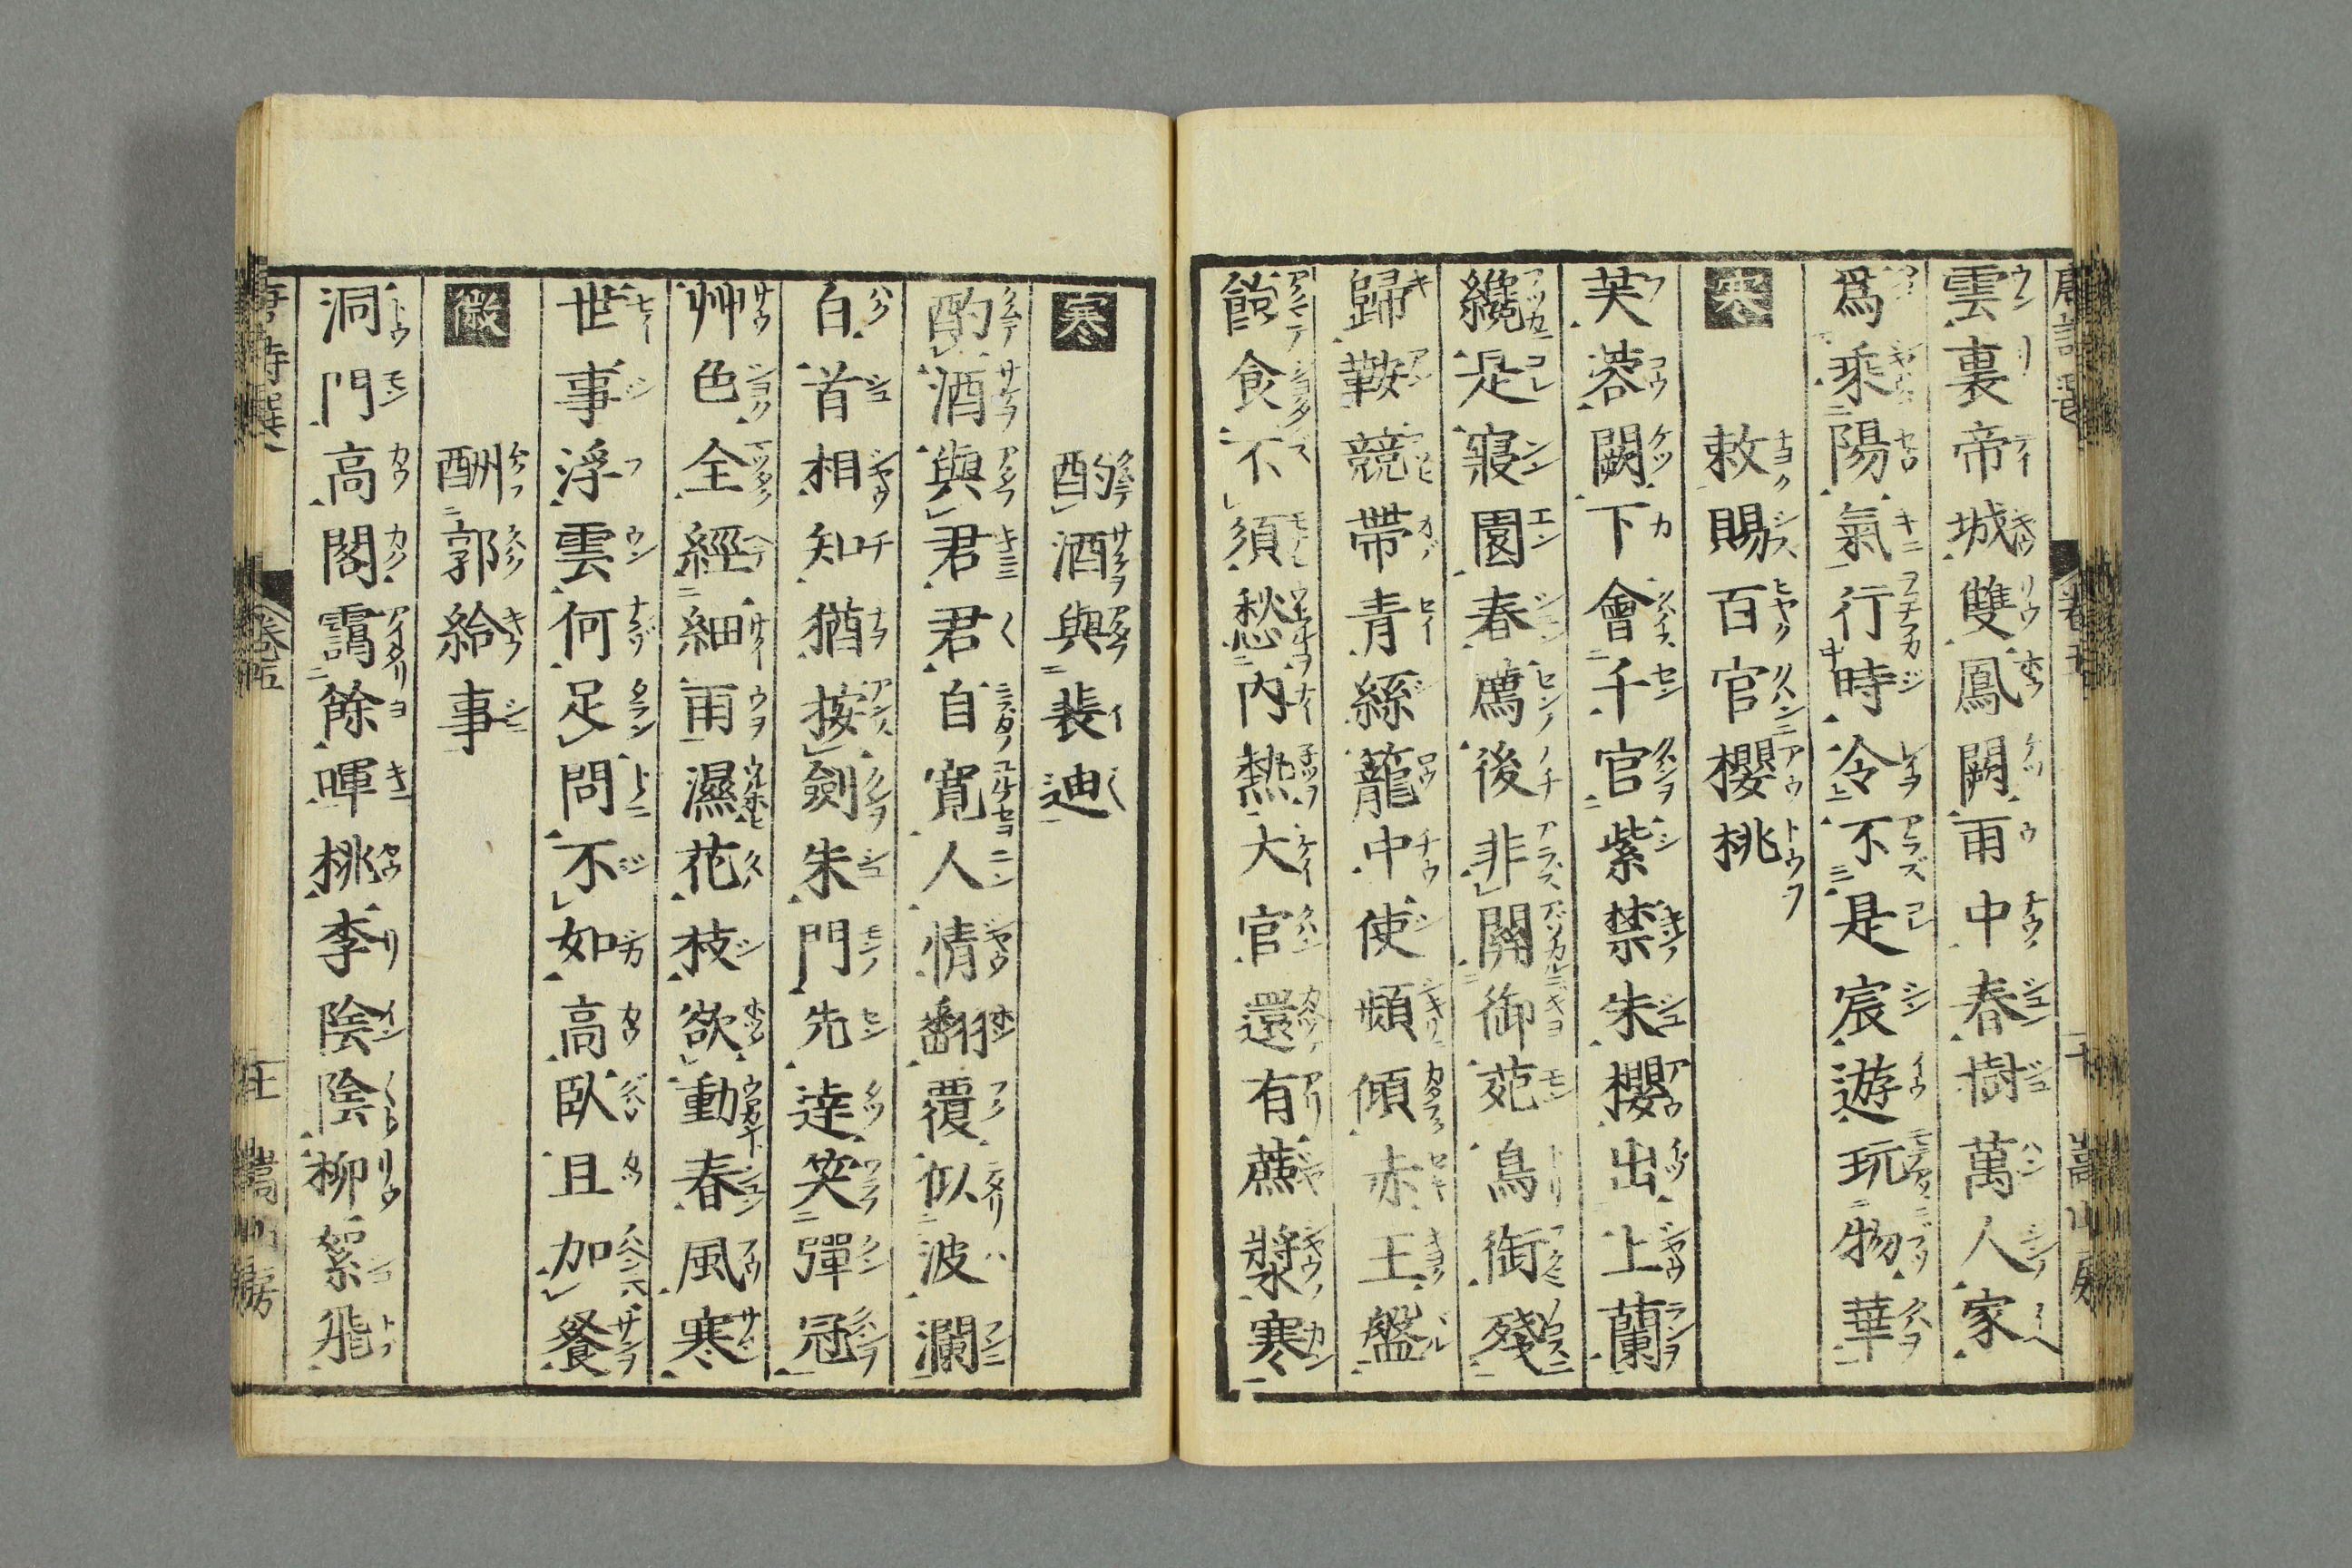 雲裏帝城雙鳳闕雨中春樹萬人家
爲乘陽氣行時令不是宸遊玩物華
寒
敕賜百官櫻桃
芙蓉闕下會千官紫禁朱櫻出上蘭
纔是寢園春薦後非關御苑鳥銜殘
歸鞍競帶青絲籠中使頻傾赤玉盤
飽食不須愁内熱大官還有蔗漿寒
寒
酌酒與裴迪
酌酒與君君自寬人情翻覆似波瀾
白首相知猶按劍朱門先達笑彈冠
艸色全經細雨濕花枝欲動春風寒
世事浮雲何足問不如高臥且加餐
微
酬郭給事
洞門高閣靄餘暉桃李陰陰柳絮飛
唐詩選
卷五
嵩山房